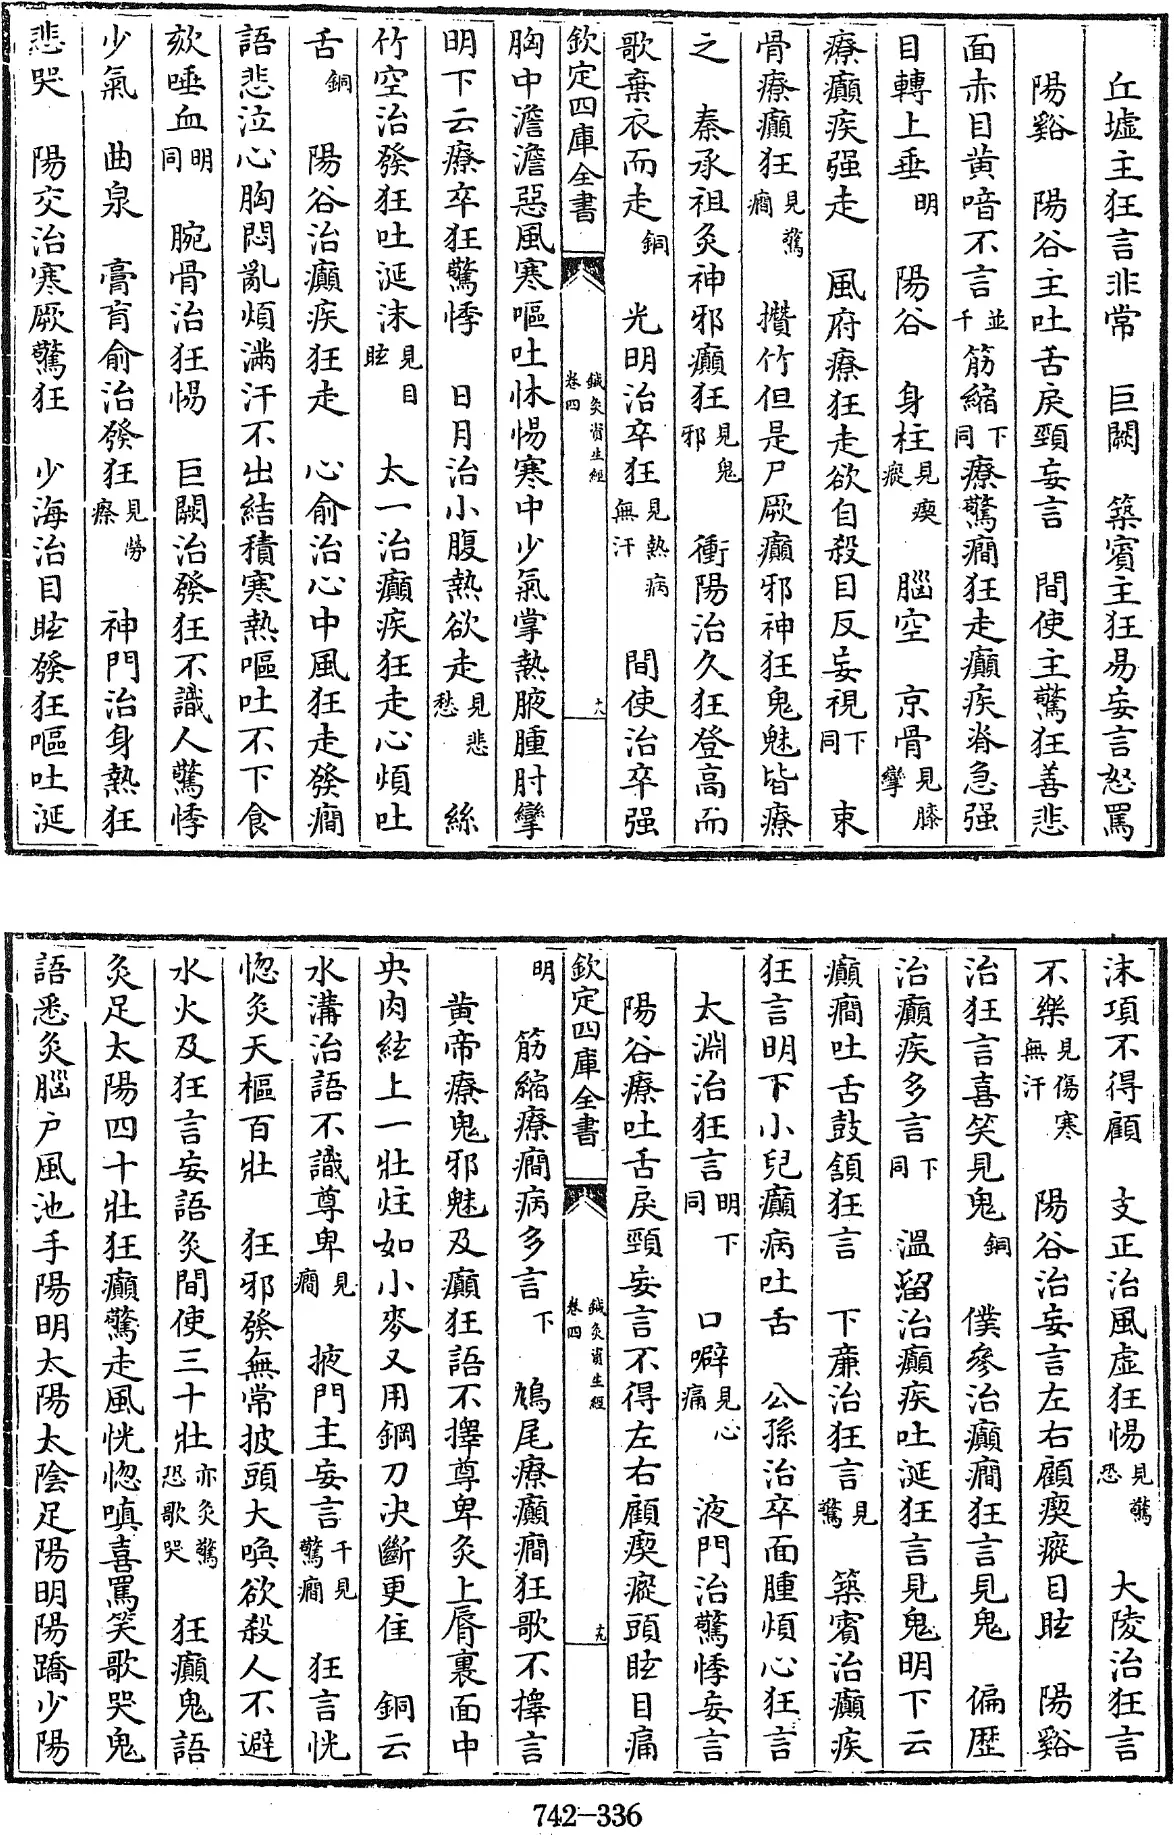 丘墟主狂言非常　巨闕　築賓主狂易妄言怒罵
陽谿　陽谷主吐舌戾頸妄言　間使主驚狂善悲
面赤目黄喑不言並千筋縮下同療驚癎狂走癲疾脊急强
目轉上垂明　陽谷　身柱見瘈瘲　腦空　京骨見膝攣
療癲疾强走　風府療狂走欲自殺目反妄視下同　束
骨療癲狂見驚癎　攢竹但是尸厥癲邪神狂鬼魅皆療
之　秦承祖灸神邪癲狂見鬼邪　衝陽治久狂登高而
歌棄衣而走銅　光明治卒狂見熱病無汗　間使治卒强
欽定四庫全書
鍼灸資生經
卷四
十八
胸中澹澹惡風寒嘔吐怵惕寒中少氣掌熱腋腫肘攣
明下云療卒狂驚悸　日月治小腹熱欲走見悲愁　絲
竹空治發狂吐涎沫見目眩　太一治癲疾狂走心煩吐
舌銅　陽谷治癲疾狂走　心俞治心中風狂走發癎
語悲泣心胸悶亂煩滿汗不出結積寒熱嘔吐不下食
欬唾血明同　腕骨治狂惕　巨闕治發狂不識人驚悸
少氣　曲泉　膏肓俞治發狂見勞瘵　神門治身熱狂
悲哭　陽交治寒厥驚狂　少海治目眩發狂嘔吐涎
沫項不得顧　支正治風虛狂惕見驚恐　大陵治狂言
不樂見傷寒無汗　陽谷治妄言左右顧瘈瘲目眩　陽谿
治狂言喜笑見鬼銅　僕參治癲癎狂言見鬼　偏歴
治癲疾多言下同　溫留治癲疾吐涎狂言見鬼明下云
癲癎吐舌鼓頷狂言　下廉治狂言見驚　築賓治癲疾
狂言明下小兒癲病吐舌　公孫治卒面腫煩心狂言
太淵治狂言明下同　口噼見心痛　液門治驚悸妄言
陽谷療吐舌戾頸妄言不得左右顧瘈瘲頭眩目痛
欽定四庫全書
鍼灸資生經
卷四
十九
明　筋縮療癎病多言下　鳩尾療癲癎狂歌不擇言
黄帝療鬼邪魅及癲狂語不擇尊卑灸上脣裏面中
央肉絃上一壯炷如小麥又用鋼刀决斷更佳　銅云
水溝治語不識尊卑見癎　掖門主妄言千見驚癎　狂言恍
惚灸天樞百壯　狂邪發無常披頭大喚欲殺人不避
水火及狂言妄語灸間使三十壯亦灸驚恐歌哭　狂癲鬼語
灸足太陽四十壯狂癲驚走風恍惚嗔喜罵笑歌哭鬼
語悉灸腦户風池手陽明太陽太陰足陽明陽蹻少陽
742—336